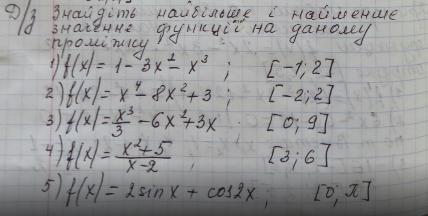 Д/з Знайдіть найбільше і найменше
значення функції на даному
проміжку
1) f(x) = 1 - 3x² - x³ ; [-1; 2]
2) f(x) = x⁴ - 8x² + 3 ; [-2; 2]
3) f(x) = x³/3 - 6x² + 3x [0; 9]
4) f(x) = (x² + 5)/(x - 2) [3; 6]
5) f(x) = 2sin x + cos2x ; [0; π]